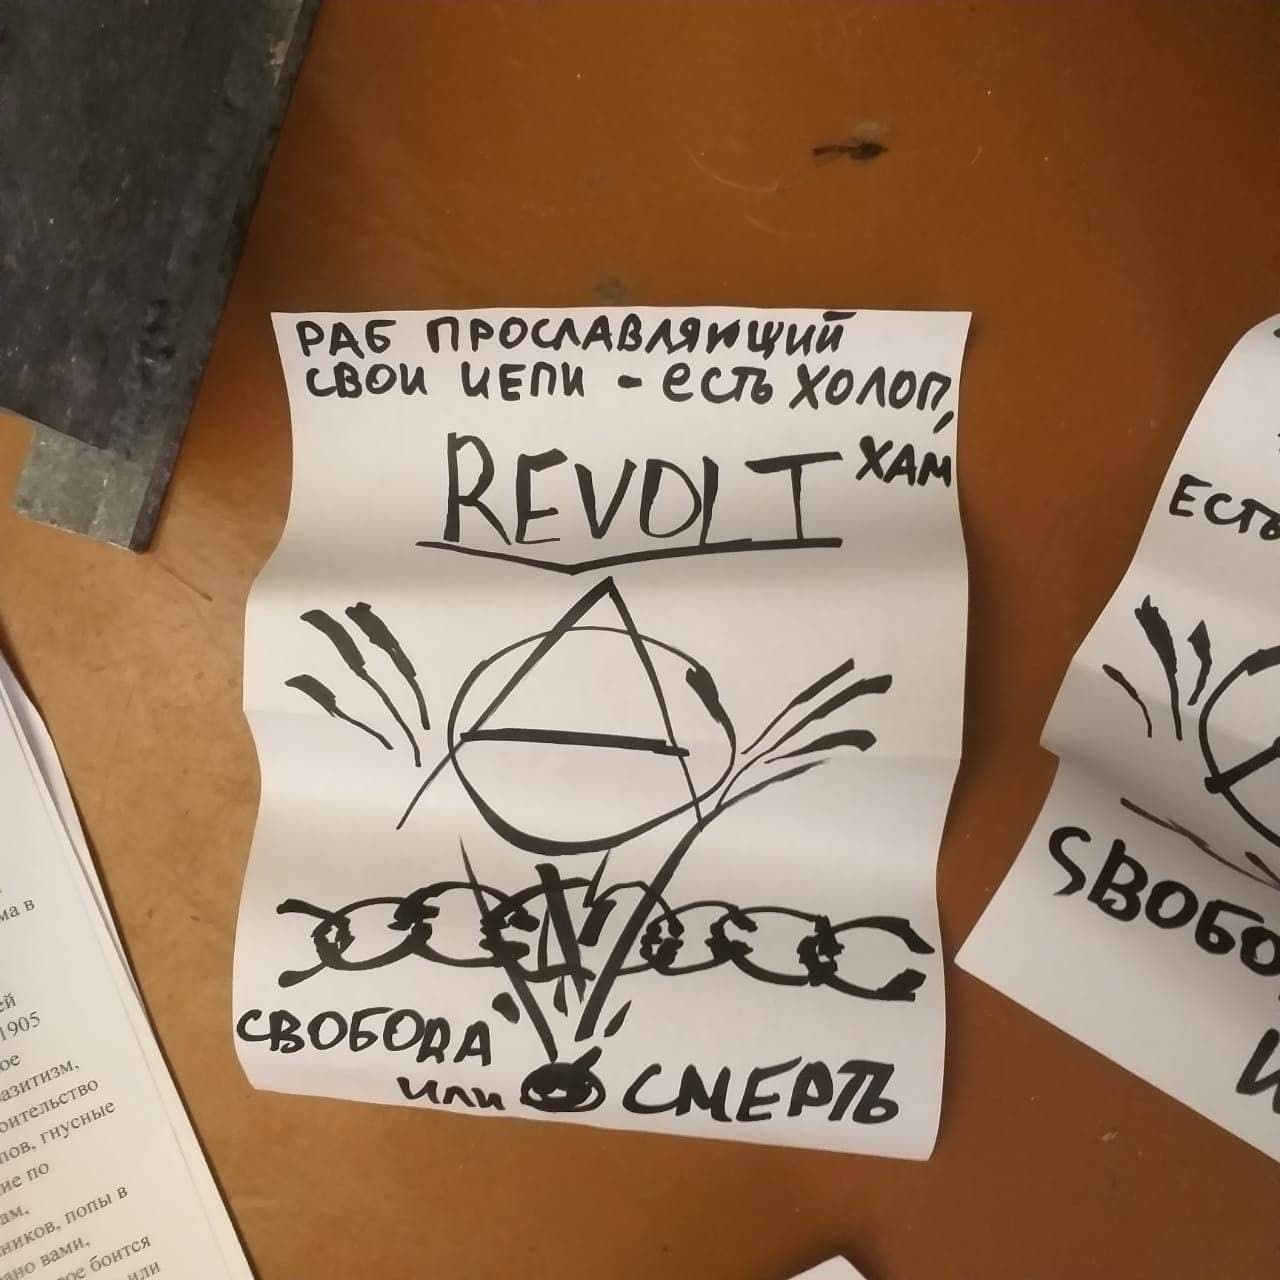 РАБ ПРОСЛАВЛЯЮЩИЙ
СВОИ ЦЕПИ - ЕСТЬ ХОЛОП,
ХАМ
REVOLT
СВОБОДА
ИЛИ СМЕРТЬ
ЕСТЬ
SВОБО
И
ма в
ей
1905
ое
азитизм,
оительство
пов, гнусные
ие по
ам,
ников, попы в
ано вами,
ое боится
или